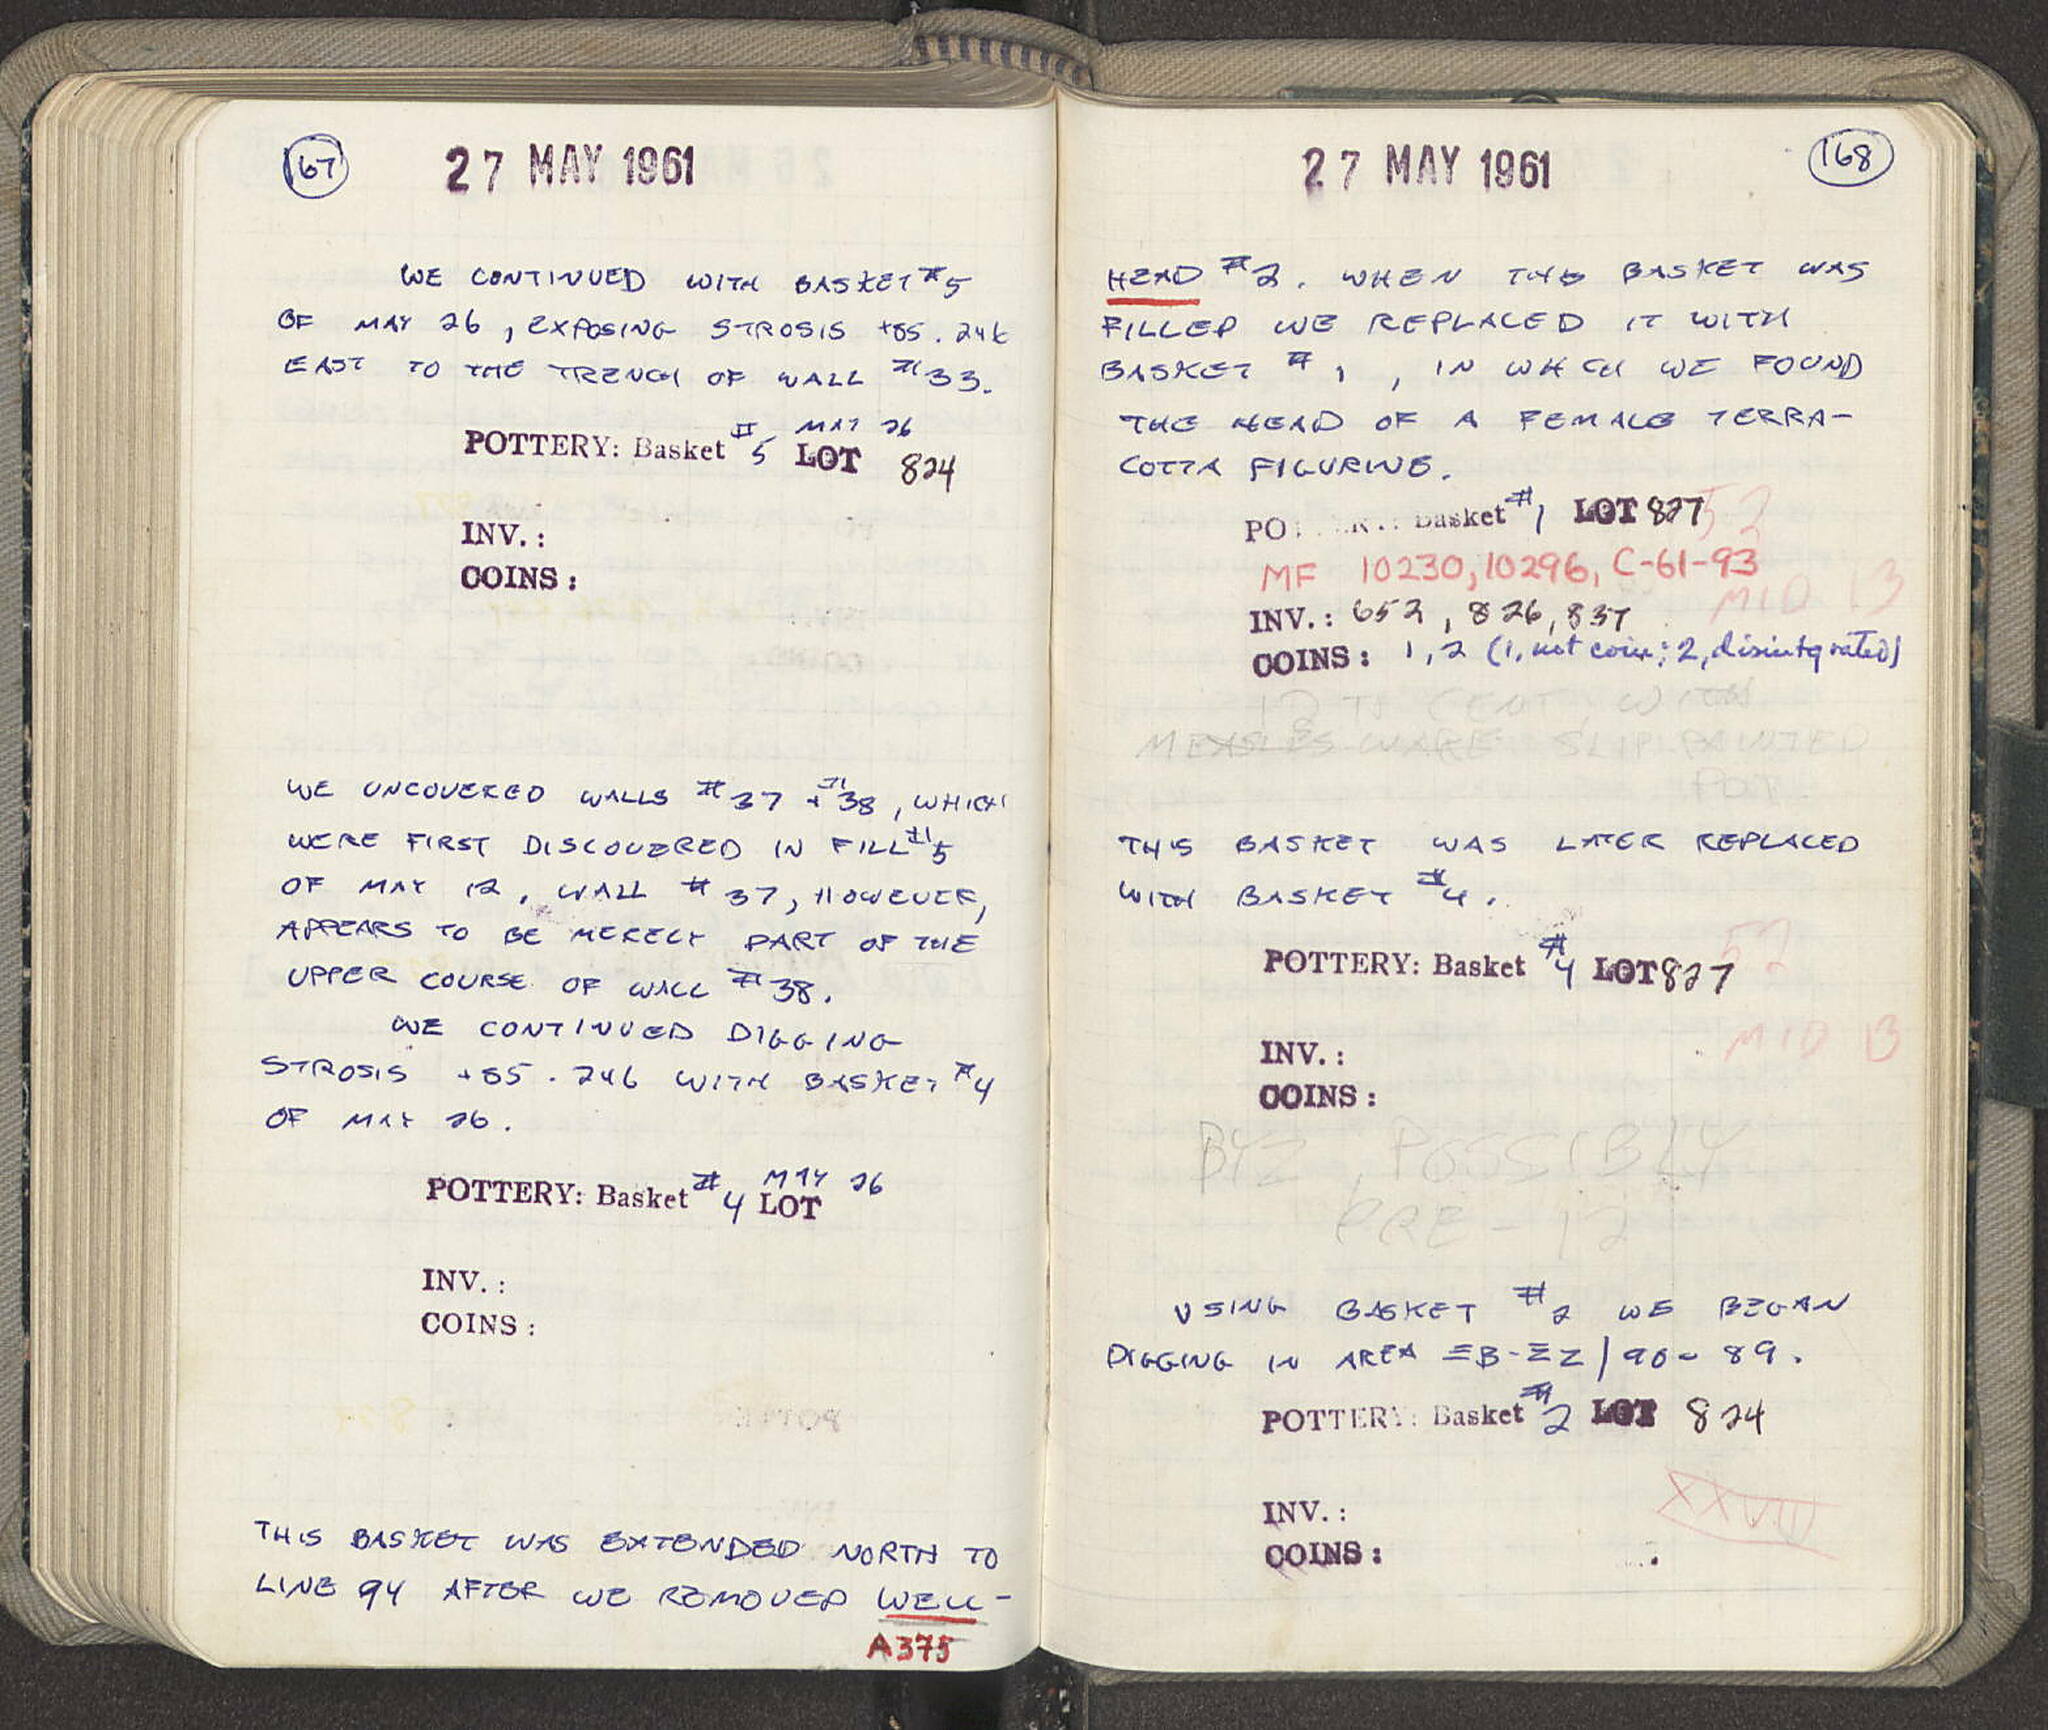 167
27 MAY 1961
WE CONTINUED WITH BASKET #5
OF MAY 26, EXPOSING STROSIS +85.246
EAST TO THE TRENCH OF WALL #33.
MAY 26
POTTERY: Basket #5 LOT 824
INV.:
COINS:
WE UNCOVERED WALLS #37 + #38, WHICH
WERE FIRST DISCOVERED IN FILL #5
OF MAY 12. WALL #37, HOWEVER,
APPEARS TO BE MERELY PART OF THE
UPPER COURSE OF WALL #38.
WE CONTINUED DIGGING
STROSIS +85.246 WITH BASKET #4
OF MAY 26.
MAY 26
POTTERY: Basket #4 LOT
INV.:
COINS:
THIS BASKET WAS EXTENDED NORTH TO
LINE 94 AFTER WE REMOVED WELL-
A375
168
27 MAY 1961
HEAD #2. WHEN THIS BASKET WAS
FILLED WE REPLACED IT WITH
BASKET #1, IN WHICH WE FOUND
THE HEAD OF A FEMALE TERRA-
COTTA FIGURINE.
POTTERY: Basket #1 LOT 827
52
MF 10230, 10296, C-61-93
MID 13
INV.: 652, 826, 837
COINS: 1, 2 (1, not coin; 2, disintegrated)
12TH CENT, WITH
MEASLES WARE SLIP PAINTED
POT.
THIS BASKET WAS LATER REPLACED
WITH BASKET #4.
52
POTTERY: Basket #4 LOT 827
MID 13
INV.:
COINS:
BYZ, POSSIBLY
PRE-12
USING BASKET #2 WE BEGAN
DIGGING IN AREA ΞB-ΞZ/90-89.
POTTERY: Basket #2 LOT 824
XXVIII
INV.:
COINS: